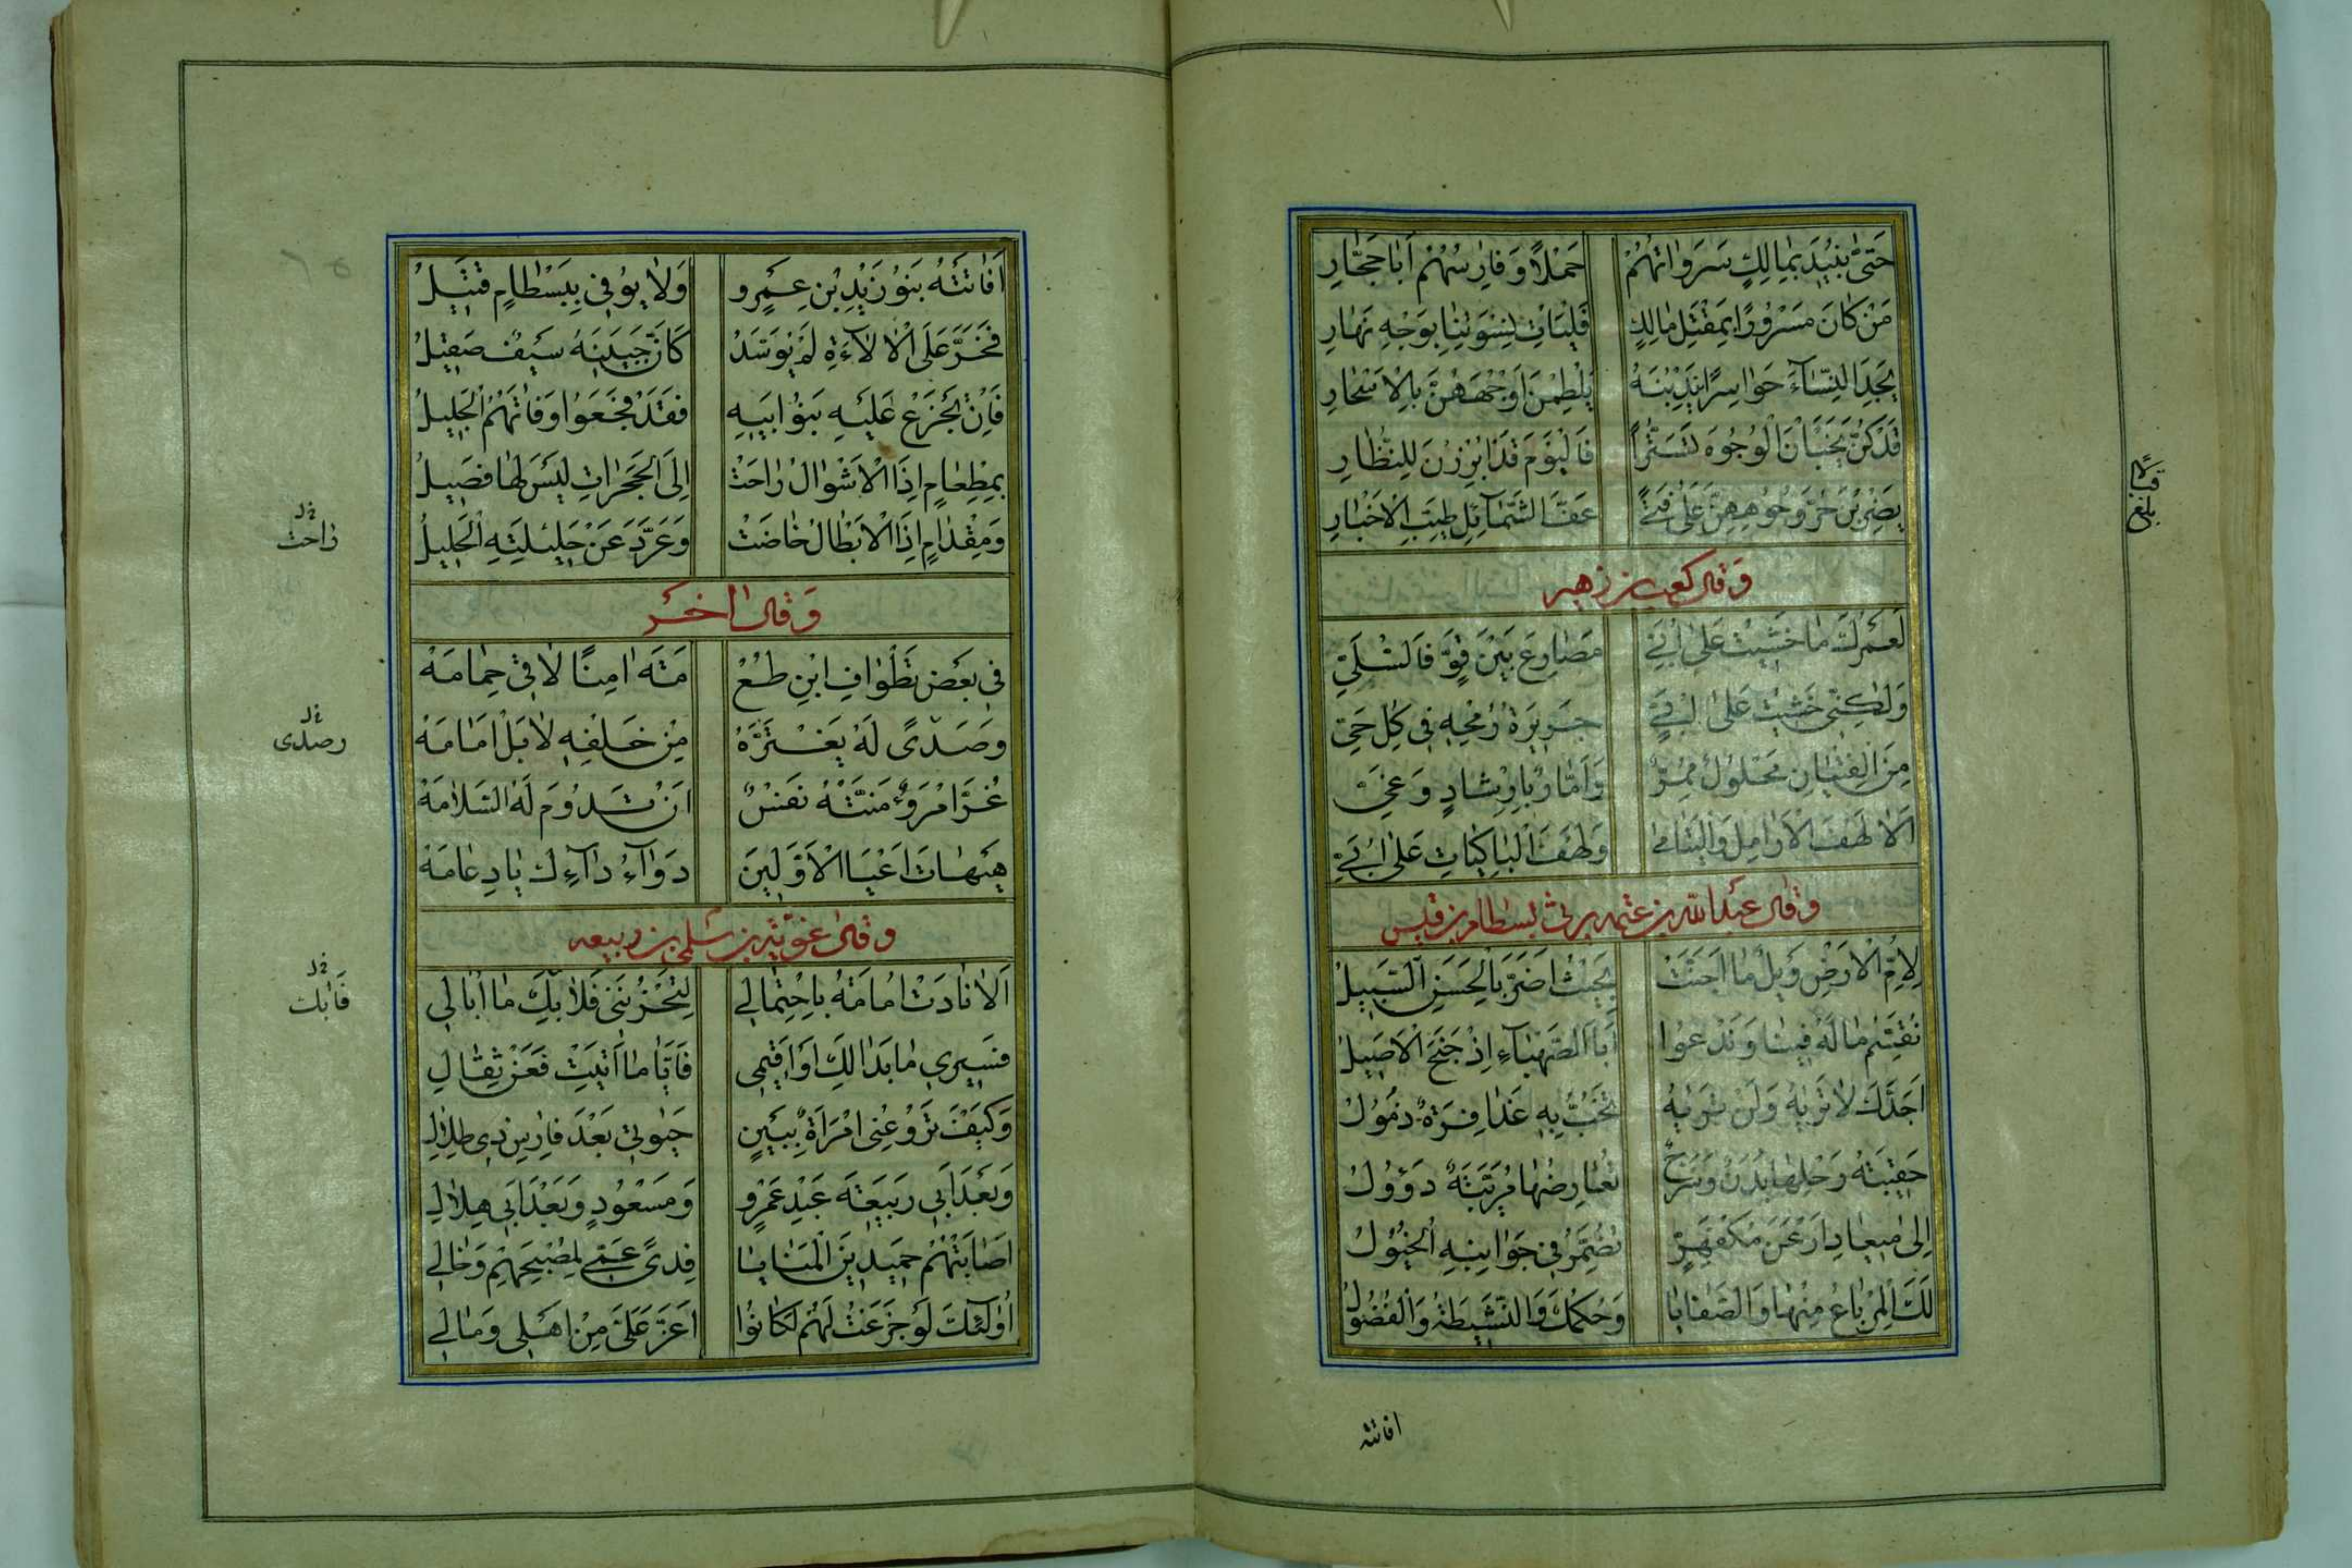 حَتّىٰ نُبِيدَ بِمَالِكٍ سَرَوَاتَهُمْ حَمَلًا وَفَارِسُهُمْ أَبَا حَجَّارِ
مَنْ كَانَ مَسْرُورًا بِمَقْتَلِ مَالِكٍ فَلْيَأْتِ نِسْوَتَنَا بِوَجْهِ نَهَارِ
يَجِدِ النِّسَآءَ حَوَاسِرًا يَنْدُبْنَهُ يَلْطِمْنَ أَوْجُهَهُنَّ بِالْأَسْحَارِ
قَدْ كُنَّ يَخْبَأْنَ الْوُجُوهَ تَسَتُّرًا فَالْيَوْمَ قَدْ أَبْرَزْنَ لِلنُّظَّارِ
يَضْرِبْنَ حُرَّ وُجُوهِهِنَّ عَلَى فَتًى عَفِّ الشَّمَآئِلِ طَيِّبِ الْأَخْبَارِ
بلغ
وقال كعب بن زهير
لَعَمْرُكَ مَا خَشِيتُ عَلَى أُبَيٍّ مَصَارِعَ بَيْنَ قَوٍّ فَالسُّلَيِّ
وَلٰكِنِّي خَشِيتُ عَلَى أُبَيٍّ جَرِيرَةَ رُمْحِهِ فِي كُلِّ حَيِّ
مِنَ الْفِتْيَانِ مُحْلَوْلٌ مُمِرٌّ وَأَمَّارٌ بِإِرْشَادٍ وَغَيِّ
أَلَا لَهْفَ الْأَرَامِلِ وَالْيَتَامَى وَلَهْفَ الْبَاكِيَاتِ عَلَى أُبَيِّ
وقال عبد الله بن عنمه يرثي بسطام بن قيس
لِأُمِّ الْأَرْضِ وَيْلٌ مَا أَجَنَّتْ بِحَيْثُ أَضَرَّ بِالْحَسَنِ السَّبِيلُ
نُقَسِّمُ مَالَهُ فِينَا وَنَدْعُوا أَبَا الصَّهْبَآءِ إِذْ جَنَحَ الْأَصِيلُ
أَجِدَّكَ لَا تَرَيْهِ وَلَنْ تَرَيْهِ تَخُبُّ بِهِ عُذَافِرَةٌ ذَمُولُ
حَقِيبَتُهُ رَحْلِهَا بَدَنٌ وَسَرْجٌ تُعَارِضُهَا مُرَبَّبَةٌ دَؤُولُ
إِلَى مِيعَادِ أَرْعَنَ مُكْفَهِرٍّ تُضَمَّرُ فِي جَوَانِبِهِ الْخُيُولُ
لَكَ الْمِرْبَاعُ مِنْهَا وَالصَّفَايَا وَحُكْمُكَ وَالنَّشِيطَةُ وَالْفُضُولُ
افاتته
أَفَاتَتْهُ بَنُو زَيْدِ بْنِ عَمْرٍو وَلَا يُوفِي بِبِسْطَامٍ قَتِيلُ
فَخَرَّ عَلَى الْأَلَآءَةِ لَمْ يُوَسَّدْ كَأَنَّ جَبِينَهُ سَيْفٌ صَقِيلُ
فَإِنْ يَجْزَعْ عَلَيْهِ بَنُو أَبِيهِ فَقَدْ فُجِعُوا وَفَاتَهُمُ الْجَلِيلُ
بِمِطْعَامٍ إِذَا الْأَشْوَالُ رَاحَتْ إِلَى الْحَجَرَاتِ لَيْسَ لَهَا فَصِيلُ
وَمِقْدَامٍ إِذَا الْأَبْطَالُ خَاضَتْ وَعَرَّدَ عَنْ حَلِيلَتِهِ الْحَلِيلُ
راحت
وَقال آخر
فِي بَعْضِ تَطْوَافِ ابْنِ طُعْ مَةَ آمِنًا لَاقَى حِمَامَهْ
وَصَدًى لَهُ يَغْتَرُّهُ مِنْ خَلْفِهِ لَا بَلْ أَمَامَهْ
ورصدى
غُرَّ امْرُؤٌ مَنَّتْهُ نَفْسٌ أَنْ تَدُومَ لَهُ السَّلَامَهْ
هَيْهَاتَ أَعْيَا الْأَوَّلِينَ دَوَآءُ دَآءِكَ يَا دِعَامَهْ
وقال غويه بن سلمى بن ربيعه
أَلَا نَادَتْ أُمَامَةُ بِاحْتِمَالِي لِتَحْزُنَنِي فَلَا بِكِ مَا أُبَالِي
فَسِيرِي مَا بَدَا لَكِ أَوْ أَقِيمِي فَأَيًّا مَا أَتَيْتِ فَعَنْ ثِقَالِ
فَابك
وَكَيْفَ تَرُوعُنِي امْرَأَةٌ بِبَيْنٍ حَيٰوتِي بَعْدَ فَارِسِ ذِي طِلَالِ
وَبَعْدَ أَبِي رَبِيعَةَ عَبْدِ عَمْرٍو وَمَسْعُودٍ وَبَعْدَ أَبِي هِلَالِ
أَصَابَتْهُمْ حَمِيدِينَ الْمَنَايَا فِدًى عَمِّي لِمُصْبَحِهِمْ وَخَالِي
أُولٰئِكَ لَوْ جَزِعْتُ لَهُمْ لَكَانُوا أَعَزَّ عَلَيَّ مِنْ أَهْلِي وَمَالِي